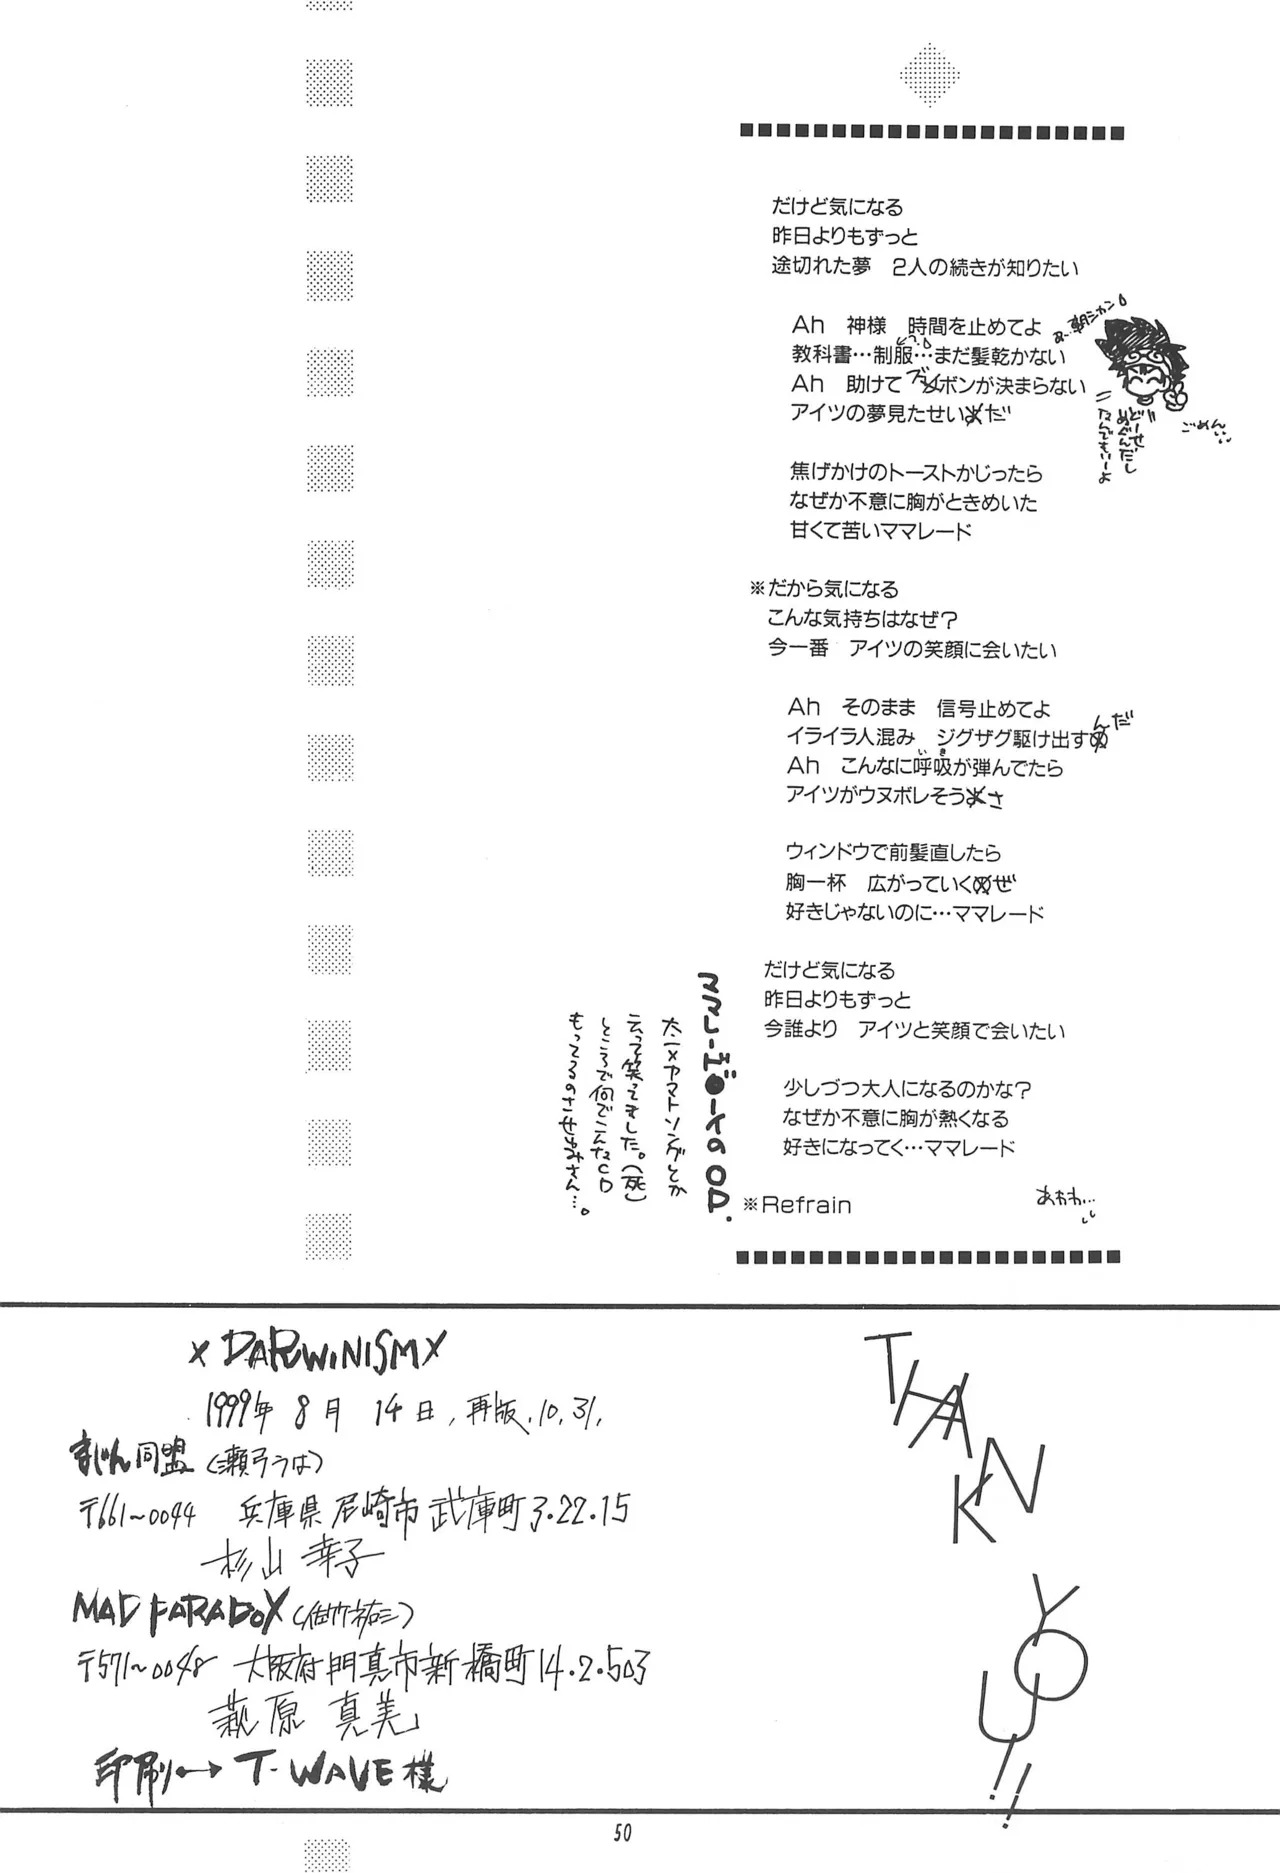 だけど気になる
昨日よりもずっと
途切れた夢　2人の続きが知りたい
Ah　神様　時間を止めてよ
教科書…制服…まだ髪乾かない
Ah　助けて　ブリボンが決まらない
アイツの夢見たせいだ
ごめん
どーせ
めぐんだし
なんでもいーよ
焦げかけのトーストかじったら
なぜか不意に胸がときめいた
甘くて苦いママレード
※だから気になる
こんな気持ちはなぜ？
今一番　アイツの笑顔に会いたい
Ah　そのまま　信号止めてよ
イライラ人混み　ジグザグ駆け出すんだ
Ah　こんなに呼吸が弾んでたら
いき
アイツがウヌボレそうさ
ウィンドウで前髪直したら
胸一杯　広がっていくぜ
好きじゃないのに…ママレード
だけど気になる
昨日よりもずっと
今誰より　アイツと笑顔で会いたい
少しづつ大人になるのかな？
なぜか不意に胸が熱くなる
好きになってく…ママレード
※Refrain
あわわ…
ママレード●ーイのOP.
太一×ヤマトソングとか
云って笑ってました。(死)
ところで何でこんなCD
もってるのさせゆみさん…。
× DARWiNiSM ×
1999年 8月 14日、再版、10.31.
まじん同盟 (瀬弓うは)
〒661～0044　兵庫県尼崎市武庫町3.22.15
杉山 幸子
MAD PARADOX
〒571～0048　大阪府門真市新橋町14.2.503
萩原 真美
印刷 → T-WAVE様
THANK
YOU!!
50